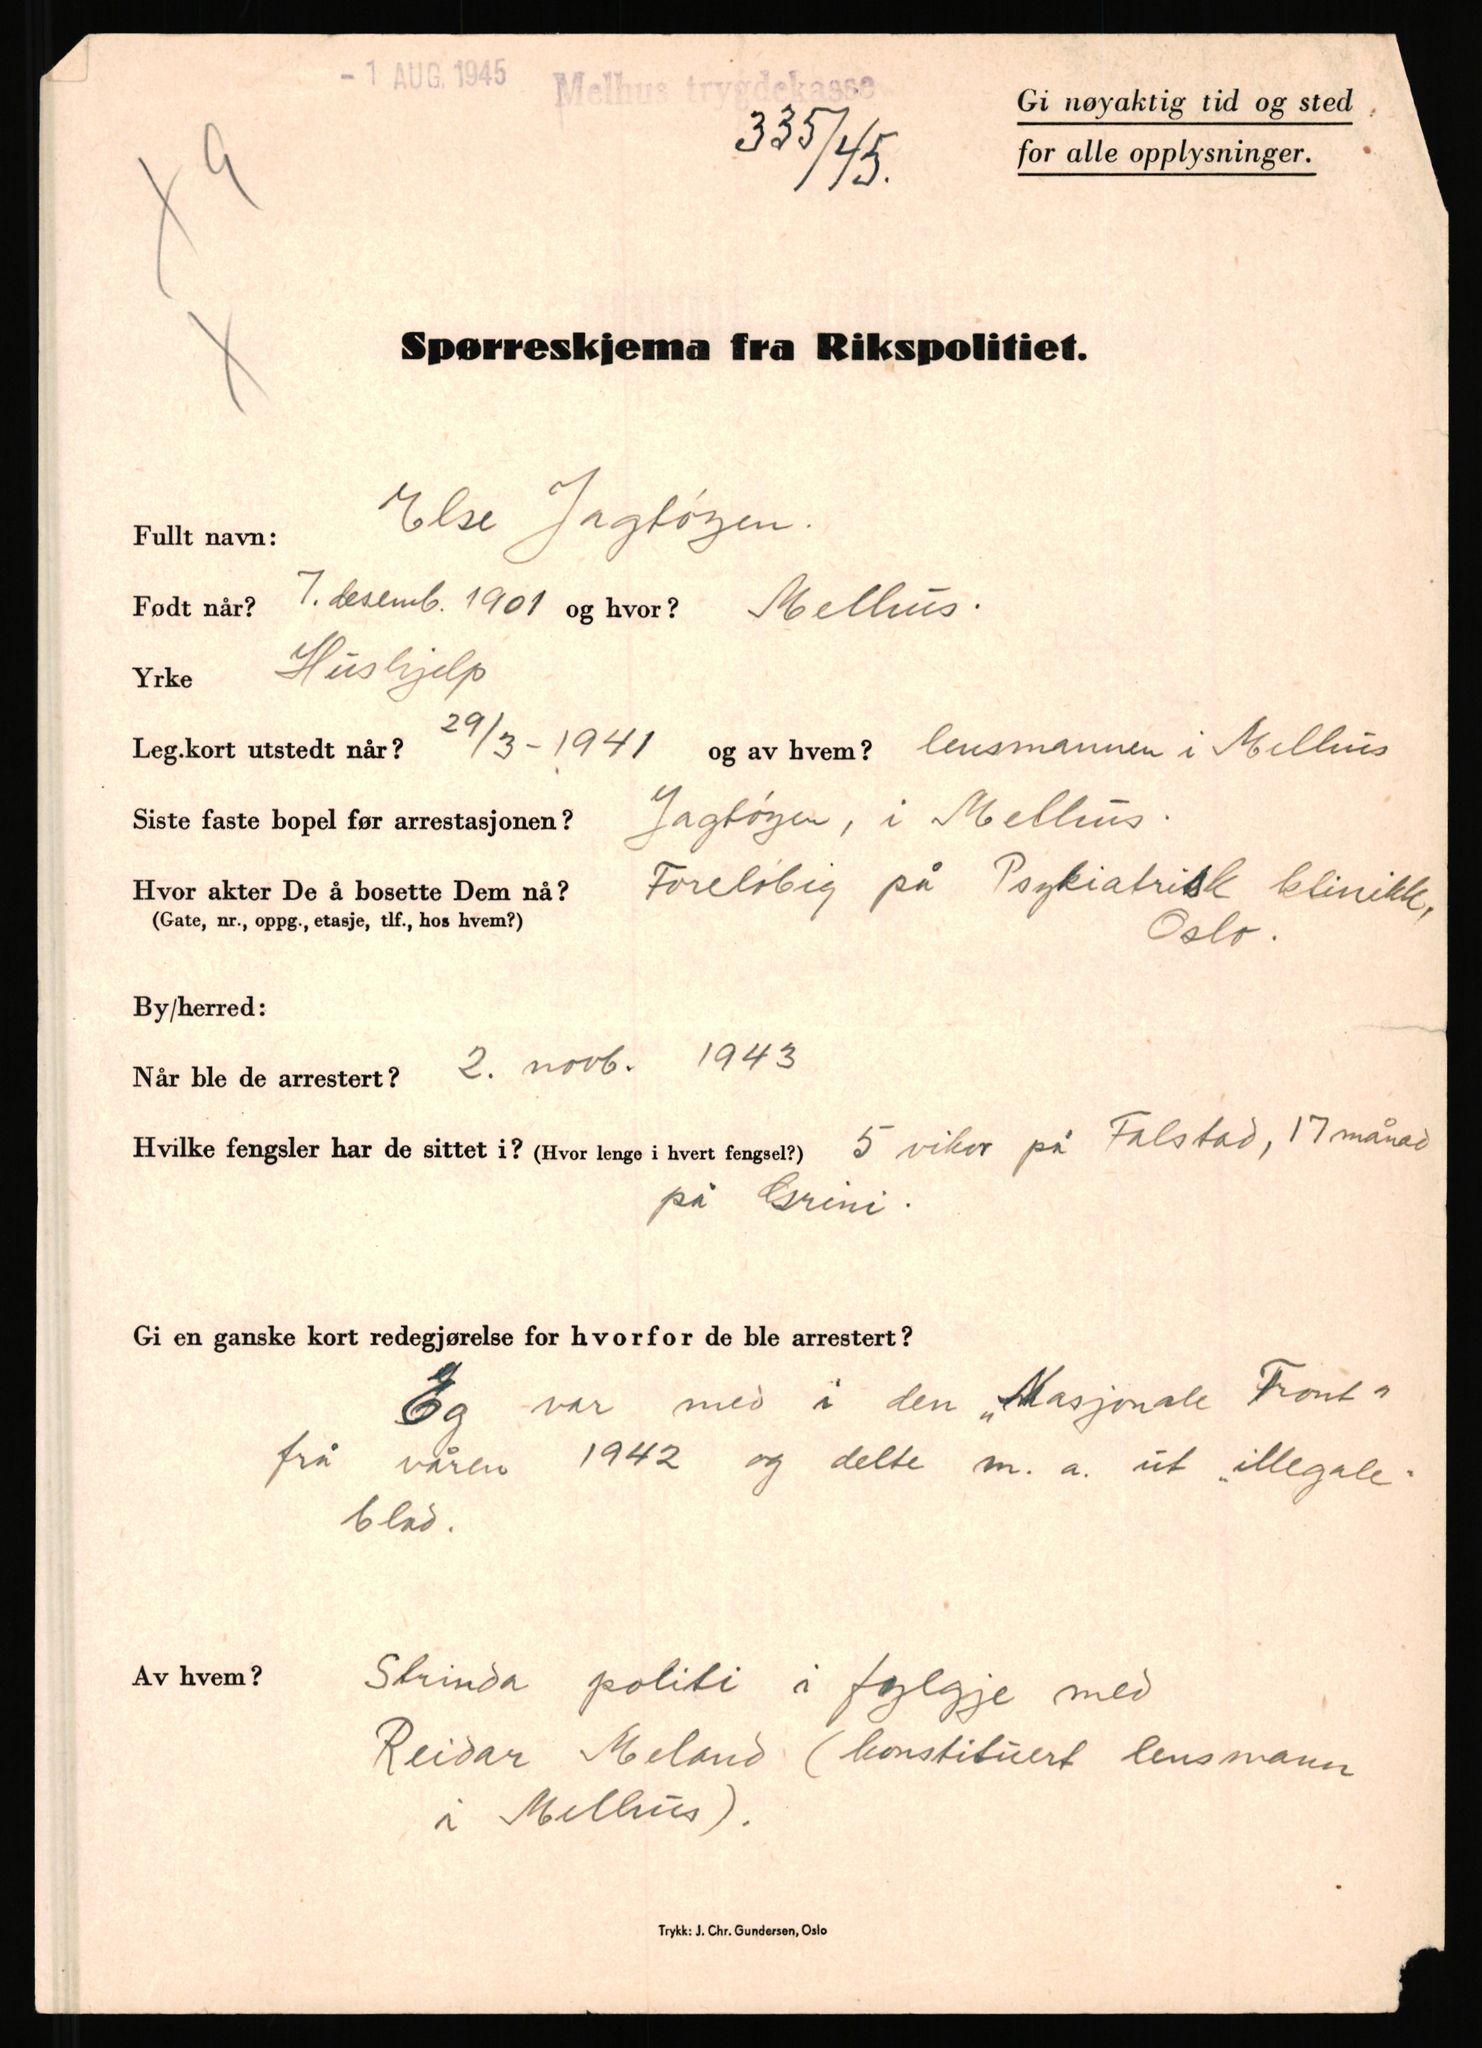 - 1 AUG. 1945 Melhus trygdekasse
335/45.
Gi nøyaktig tid og sted
for alle opplysninger.
X 9
X
Spørreskjema fra Rikspolitiet.
Fullt navn: Else Jagtøyen.
Født når? 7. desemb. 1901 og hvor? Melhus.
Yrke Hushjelp
Leg.kort utstedt når? 29/3-1941 og av hvem? lensmannen i Melhus
Siste faste bopel før arrestasjonen? Jagtøyen, i Melhus.
Hvor akter De å bosette Dem nå? Foreløbig på Psykiatrisk klinikk,
(Gate, nr., oppg., etasje, tlf., hos hvem?) Oslo.
By/herred:
Når ble de arrestert? 2. novb. 1943
Hvilke fengsler har de sittet i? (Hvor lenge i hvert fengsel?) 5 vikor på Falstad, 17 månad
på Grini.
Gi en ganske kort redegjørelse for hvorfor de ble arrestert?
Eg var med i den „Nasjonale Front"
frå våren 1942 og delte m. a. ut „illegale"
blad.
Av hvem? Strinda politi i fylgje med
Reidar Meland (konstituert lensmann
i Melhus).
Trykk: J. Chr. Gundersen, Oslo